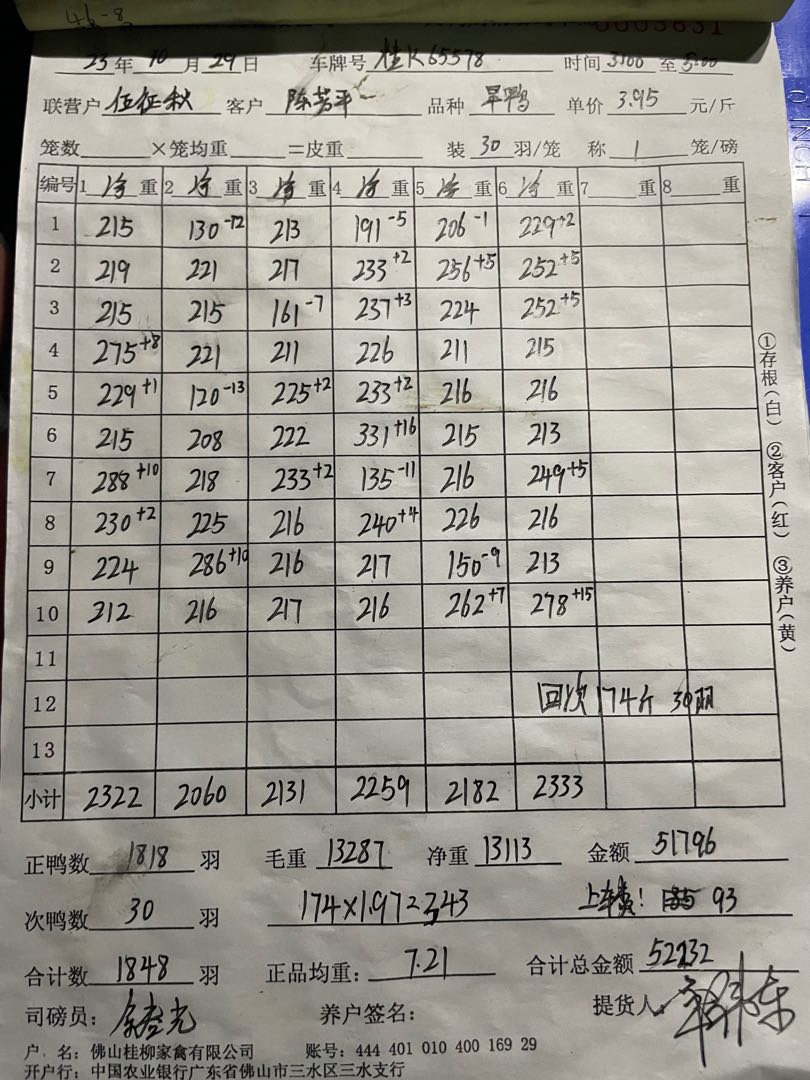 46-8
0003631
23年10月29日 车牌号 桂K65578 时间 3:00 至 5:00
联营户 伍征秋 客户 陈芳平 品种 旱鸭 单价 3.95 元/斤
笼数 ×笼均重 =皮重 装 30 羽/笼 称 1 笼/磅
编号 1 净 重 2 净 重 3 净 重 4 净 重 5 净 重 6 净 重 7 重 8 重
1 215 130-12 213 191-5 206-1 229+2
2 219 221 217 233+2 256+5 252+5
3 215 215 161-7 237+3 224 252+5
4 275+8 221 211 226 211 215
5 229+1 120-13 225+2 233+2 216 216
6 215 208 222 331+16 215 213
7 288+10 218 233+2 135-11 216 249+5
8 230+2 225 216 240+4 226 216
9 224 286+10 216 217 150-9 213
10 312 216 217 216 262+7 278+15
11
12 回次 174斤 30羽
13
小计 2322 2060 2131 2259 2182 2333
①存根(白) ②客户(红) ③养户(黄)
正鸭数 1818 羽 毛重 13287 净重 13113 金额 51796
次鸭数 30 羽 174×1.97=343 上车费! 93
合计数 1848 羽 正品均重: 7.21 合计总金额 52232
司磅员: 养户签名: 提货人:
户 名: 佛山桂柳家禽有限公司 账号: 444 401 010 400 169 29
开户行: 中国农业银行广东省佛山市三水区三水支行
INCH